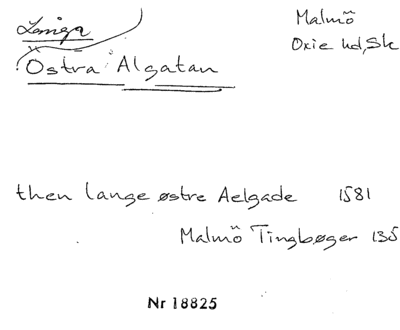 Långa
Malmö
Östra Algatan
Oxie hd, Sk
then lange østre Aelgade 1581
Malmö Tingbøger 135
Nr 18825